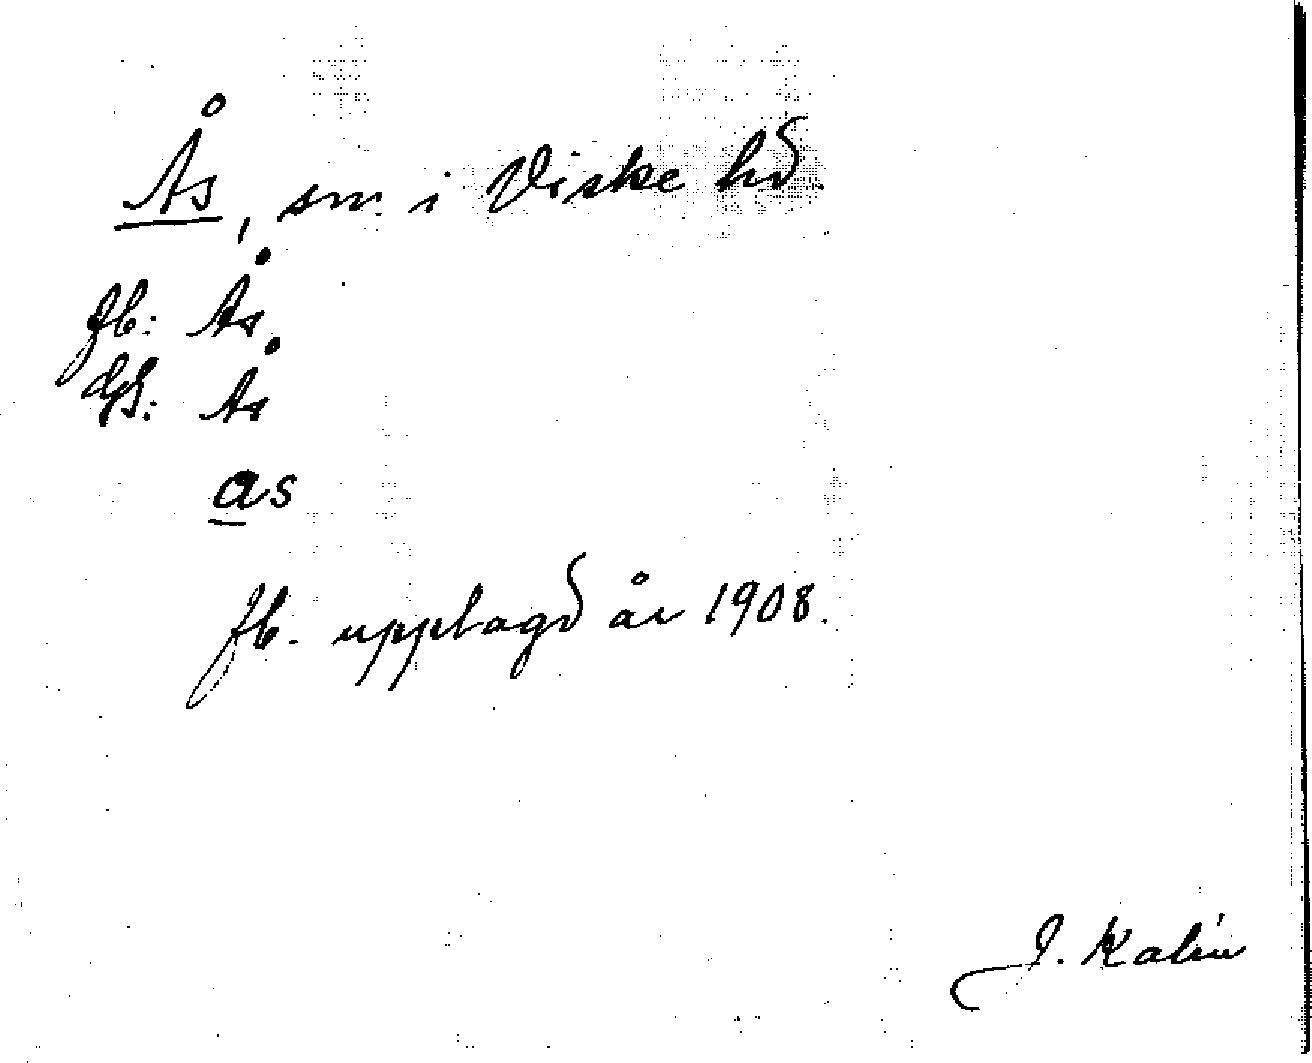 Ås, sn. i Viske hd.
fb: Ås
Gfs: Ås
as
fb. upptagd år 1908.
J. Kalén